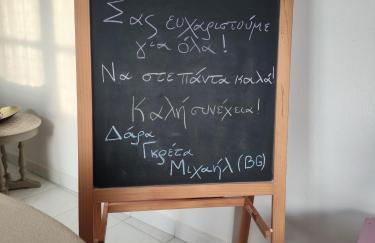 Σας ευχαριστούμε
για όλα!
Να στε πάντα καλά!
Καλή συνέχεια!
Δάρα
Γκρέτα
Μιχαήλ (BG)